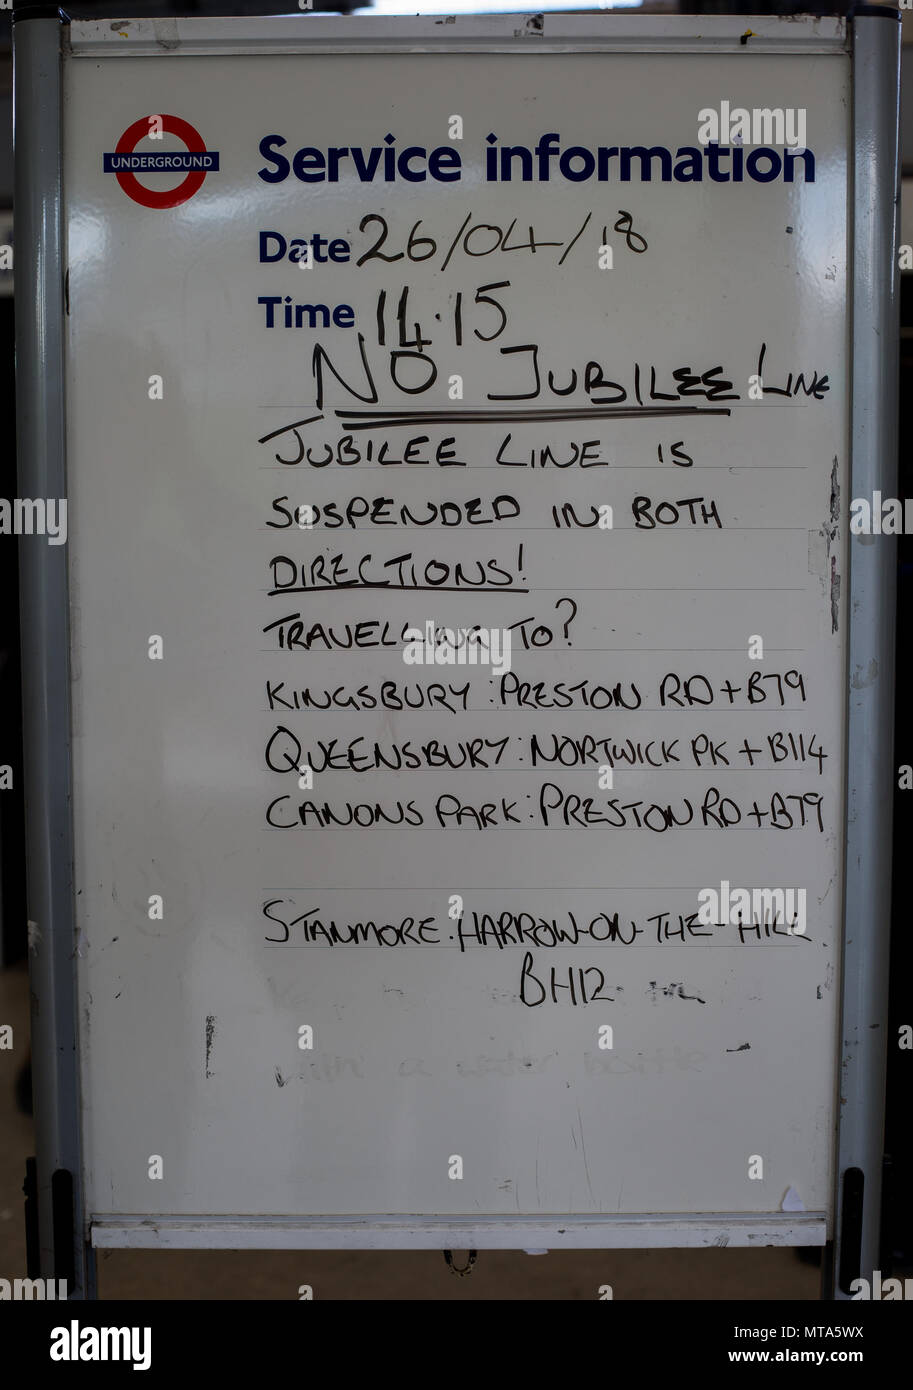 UNDERGROUND
Service information
Date 26/04/18
Time 14.15
NO JUBILEE LINE
JUBILEE LINE IS
SUSPENDED IN BOTH
DIRECTIONS!
TRAVELLING TO?
KINGSBURY: PRESTON RD + B79
QUEENSBURY: NORTWICK PK + B114
CANONS PARK: PRESTON RD + B79
STANMORE: HARROW-ON-THE-HILL
BH12
a water bottle
alamy
alamy stock photo
Image ID: MTA5WX
www.alamy.com